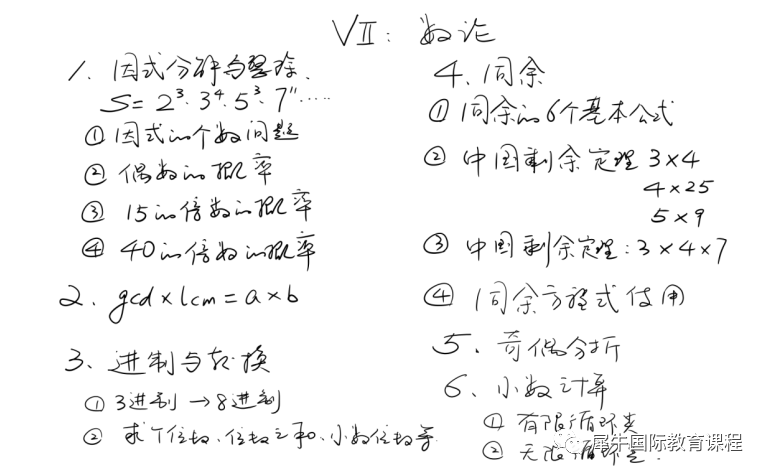 VII: 数论
1. 因式分解与整除.
S = 2³·3⁴·5³·7¹¹·····
① 因式的个数问题
② 偶数的概率
③ 15的倍数的概率
④ 40的倍数的概率
2. gcd × lcm = a × b
3. 进制与转换
① 3进制 → 8进制
② 求个位数、位数之和、小数位数等
4. 同余
① 同余的6个基本公式
② 中国剩余定理 3×4
4×25
5×9
③ 中国剩余定理: 3×4×7
④ 同余方程式使用
5. 奇偶分折
6. 小数计算
① 有限循环类
② 无限循环
犀牛国际教育课程